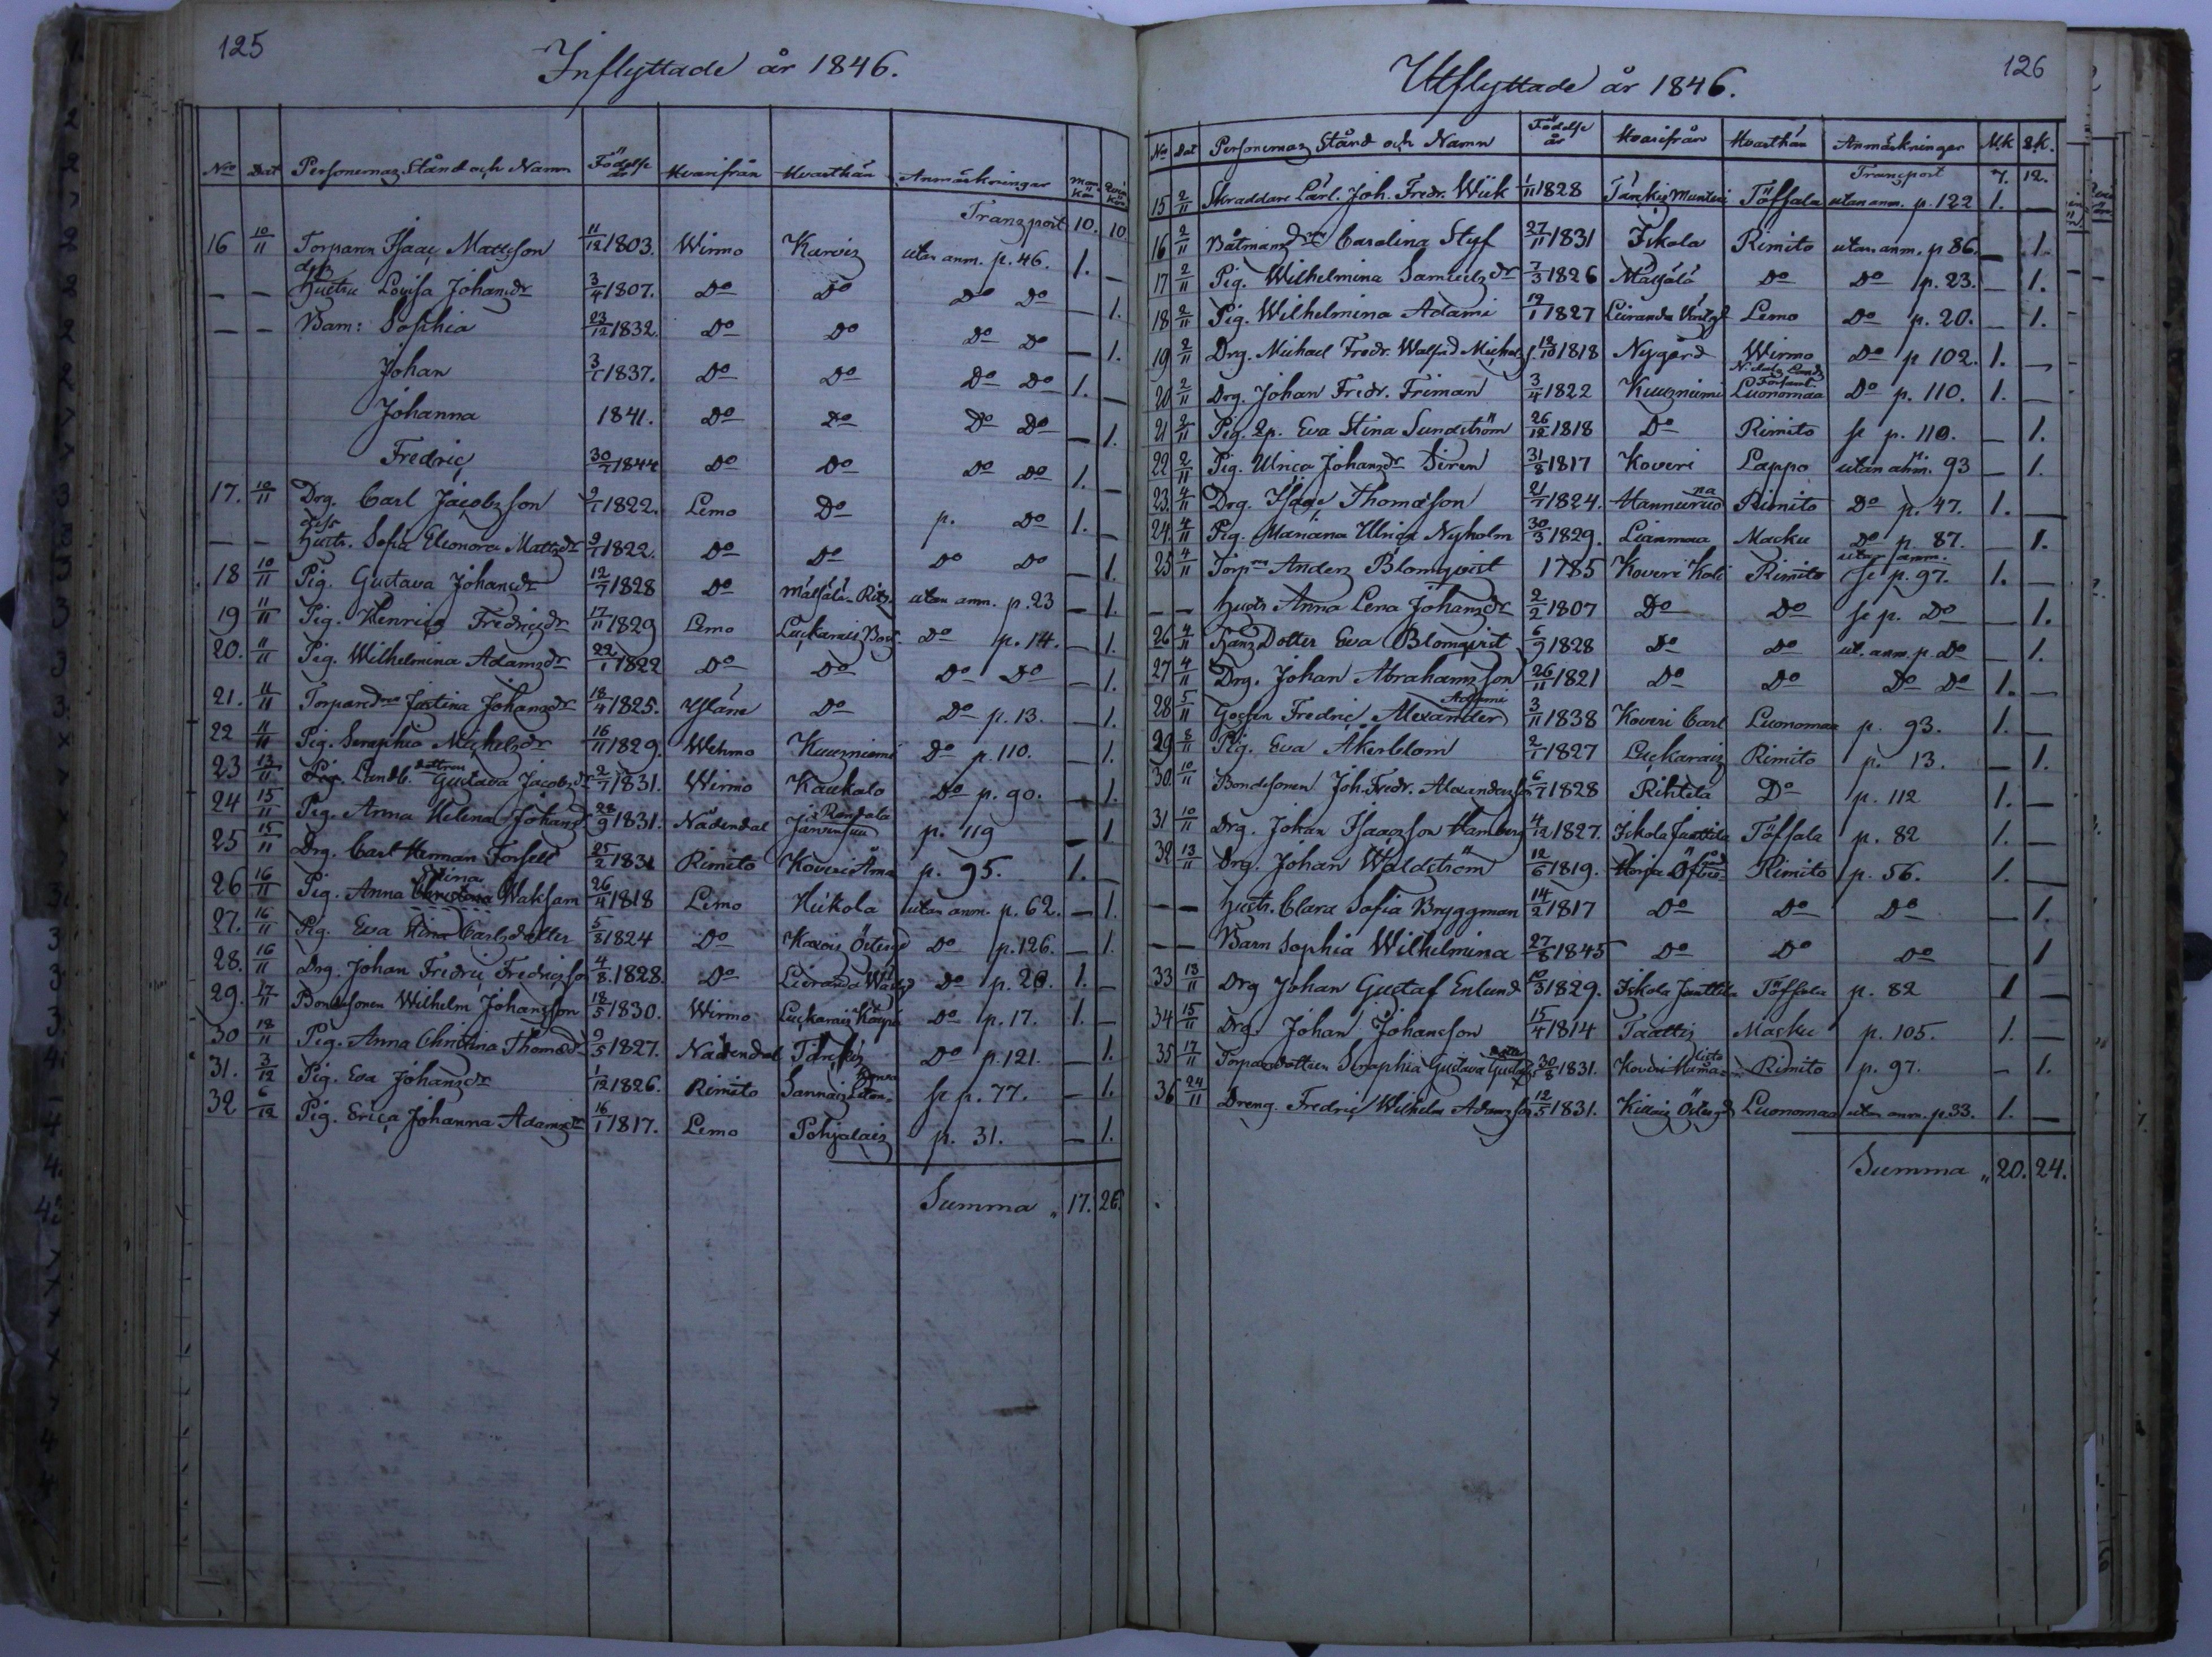 125
Inflyttade år 1846.
Nro Dat Personernas Stånd och Namn Födelse år Hvarifrån Hvarthän Anmärkningar Man Kön Qvin Kön
Transport 10. 10.
16 10/11 Torparen Isaac Mattsson 11/12 1803. Wirmo Kurvis utan anm. p. 46. 1. —
— — dess Hustru Lovisa Johansdr 3/4 1807. Do Do Do Do — 1.
— — Barn: Sophia 23/12 1832. Do Do Do Do — 1.
Johan 3/1 1837. Do Do Do Do 1. —
Johanna 1841. Do Do Do Do — 1.
Fredric 30/7 1844 Do Do Do Do 1. —
17. 10/11 Drg. Carl Jacobsson 9/1 1822. Lemo Do p. Do 1. —
— — dess Hustr. Sofia Eleonora Mattsdr 9/1 1822. Do Do Do Do — 1.
18 10/11 Pig. Gustava Johansdr 12/7 1828 Do utan anm. p. 23 — 1.
19 11/11 Pig. Henrica Fredricsdr 17/11 1829 Lemo Luckarais Do p. 14. — 1.
20. 11/11 Pig. Wilhelmina Adamsdr 22/1 1822 Do Do Do Do — 1.
21. 11/11 Torparedrn Justina Johansdr 18/4 1825. Yläne Do Do p. 13. — 1.
22 11/11 Pig. Seraphia Michelsdr 16/11 1829. Wehmo Kuusniemi Do p. 110. — 1.
23 13/11 Pig. Landb. dottren Gustava Jacobsdr 2/7 1831. Wirmo Kaukalo Do p. 90. — 1.
24 15/11 Pig. Anna Helena Johansd 28/9 1831. Nådendal p. 119 — 1
25 15/11 Drg. Carl Herman Forsell 25/2 1831 Rimito Koveri p. 95. 1. —
26 16/11 Pig. Anna Christina Stina Waksam 26/4 1818 Lemo Nickola utan anm. p. 62. — 1.
27. 16/11 Pig. Eva Stina Carlsdotter 5/8 1824 Do Do p. 126. — 1.
28. 16/11 Drg. Johan Fredric Fredricsson 4/8. 1828. Do Do p. 20. 1. —
29. 17/11 Bondesonen Wilhelm Johansson 18/5 1830. Wirmo Luckarais Do p. 17. 1. —
30 18/11 Pig. Anna Christina Thomasd 9/5 1827. Nådendal Tårckis Do p. 121. — 1.
31. 3/12 Pig. Eva Johansdr 1/12 1826. Rimito Sannais se p. 77. — 1.
32 6/12 Pig. Erica Johanna Adamsdr 16/1 1817. Lemo Pohjalais p. 31. — 1.
Summa „ 17. 26.
126
Utflyttade år 1846.
No Dat Personernas Stånd och Namn Födelse år Hvarifrån Hvarthän Anmärkningar M.K Q.K.
Transport 7. 12.
15 2/11 Skraddare Lärl. Joh. Fredr. Wiik 1/11 1828 Töfsala utan anm. p. 122 1. —
16 2/11 Båtmansdrn Carolina Styf 27/11 1831 Iskola Rimito utan anm. p 86. — 1.
17 2/11 Pig. Wilhelmina Samuelsdr 7/3 1826 Do Do p. 23. — 1.
18 2/11 Pig. Wilhelmina Adami 19/1 1827 Lemo Do p. 20. — 1.
19 2/11 Drg. Michael Fredr. Walfrid 12/10 1818 Nygård Wirmo Do p 102. 1. —
20 2/11 Drg. Johan Fredr. Friman 3/4 1822 Kuusniemi N:dals Lands Församl. Luonomaa Do p. 110. 1. —
21 2/11 Pig. Eva Stina Sundström 26/12 1818 Do Rimito se p. 110. — 1.
22 2/11 Pig. Ulrica Johansdr Siren 31/8 1817 Koveri Lappo utan anm. p. 93 — 1.
23. 4/11 Drg. Isaac Thomasson 21/7 1824. Rimito Do p. 47. 1. —
24. 4/11 Pig. Mariana Ulrica Nyholm 30/3 1829. Lianmaa Masku Do p. 87. — 1.
25 4/11 Torprn Anders Blomqvist 1785 Koveri Koli Rimito utan anm. se p. 97. 1. —
— — Hustr Anna Lena Johansdr 2/2 1807 Do Do se p. Do — 1.
26 4/11 Hans Dotter Eva Blomqvist 6/9 1828 Do Do ut. anm. p. Do — 1.
27 4/11 Drg. Johan Abrahamsson 26/11 1821 Do Do Do Do 1. —
28 5/11 Gossen Fredric Alexander Adami 3/11 1838 Koveri Carl Luonomaa p. 93. 1. —
29 8/11 Pig. Eva Åkerblom 2/1 1827 Luckarais Rimito p. 13. — 1.
30. 10/11 Bondesonen Joh. Fredr. Alexandersson 6/7 1828 Rihtilä Do p. 112 1. —
31 10/11 Drg. Johan Isaacsson Hamberg 4/12 1827. Iskola Jånttila Töfsala p. 82 1. —
32 13/11 Drg. Johan Waldström 12/6 1819. Rimito p. 56. 1. —
— — Hustr. Clara Sofia Bryggman 14/2 1817 Do Do Do — 1.
— — Barn Sophia Wilhelmina 27/8 1845 Do Do Do — 1
33 13/11 Drg Johan Gustaf Enlund 10/3 1829. Iskola Jånttila Töfsala p. 82 1 —
34 15/11 Drg. Johan Johansson 15/4 1814 Taattis Masku p. 105. 1. —
35 17/11 Torparedottren Seraphia Gustava 30/8 1831. Rimito p. 97. — 1.
36 24/11 Dreng. Fredric Wilhelm Adamsson 12/5 1831. Luonomaa utan anm. p. 33. 1. —
Summa „ 20. 24.